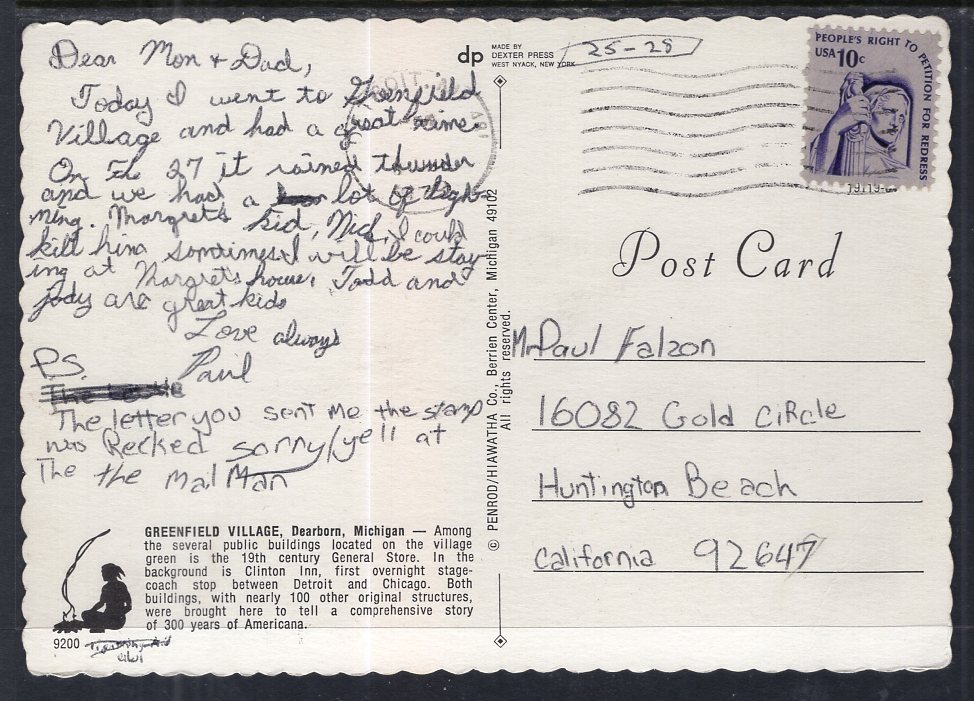 Dear Mom + Dad,
Today I went to Greenfield
Village and had a great time.
On The 27 it rained thunder
and we had a lot of ligh-
ning. Margret's kid, Nick, I could
kill him somtimes. I will be stay-
ing at Margret's house, Todd and
Jody are great kids
Love always
Paul
P.S.
The letter you sent me the stamp
was Recked sorry/yell at
The the mal Man
GREENFIELD VILLAGE, Dearborn, Michigan — Among
the several public buildings located on the village
green is the 19th century General Store. In the
background is Clinton Inn, first overnight stage-
coach stop between Detroit and Chicago. Both
buildings, with nearly 100 other original structures,
were brought here to tell a comprehensive story
of 300 years of Americana.
9200
dp MADE BY
DEXTER PRESS
WEST NYACK, NEW YORK
© PENROD/HIAWATHA Co., Berrien Center, Michigan 49102
All rights reserved.
25-28
PEOPLE'S RIGHT TO PETITION FOR REDRESS
USA 10c
Post Card
Mr Paul Falzon
16082 Gold CiRcle
Huntington Beach
California 92647